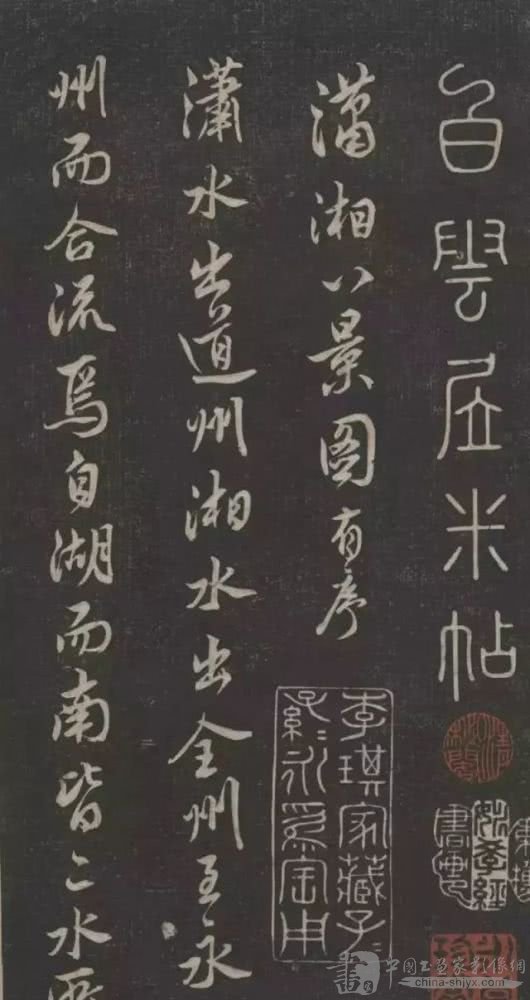 白雲居米帖
瀟湘八景圖有序
瀟水出道州湘水出全州至永
州而合流焉自湖而南皆二水所
李琪家藏子
孫永為寶用
中国书画家影像網
china-shjyx.com